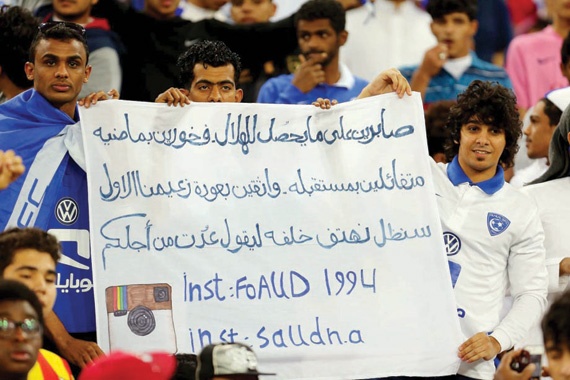 صابرين على ما يحصل للهلال. فخورين بماضيه
متفائلين بمستقبله. واثقين بعودة زعيمنا الاول
سنظل نهتف خلفه ليقول عُدت من أجلكم
inst: FOAUD 1994
inst: saudn.a
موبايلي